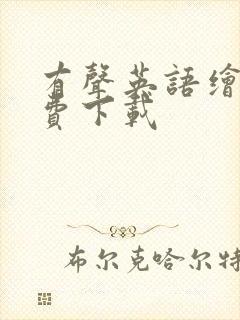 有聲英語繪
費下載
布尔克哈尔特